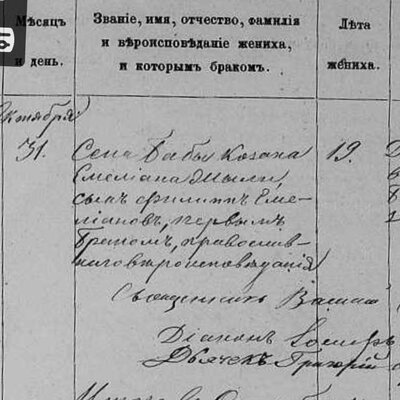 Мѣсяцъ и день.
Званіе, имя, отчество, фамилія
и вѣроисповѣданіе жениха,
и которымъ бракомъ.
Лѣта
жениха.
Октября
31.
Села Бабы Козака
Емеліана
сынъ Филиппъ Еме-
ліановъ, первымъ
бракомъ, православ-
наго вѣроисповѣданія
19.
Священникъ
Діаконъ
Дьячекъ Григорій